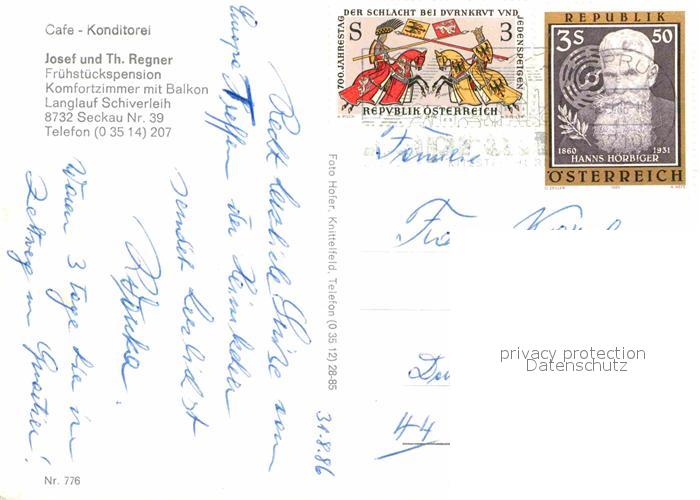 Cafe - Konditorei
Josef und Th. Regner
Frühstückspension
Komfortzimmer mit Balkon
Langlauf Schiverleih
8732 Seckau Nr. 39
Telefon (0 35 14) 207
1700 JAHRESTAG DER SCHLACHT BEI DVRNKRVT VND JEDENSPEIGEN
S 3
REPVBLIK ÖSTERREICH
REPUBLIK
3S 50
1860 1931
HANNS HÖRBIGER
ÖSTERREICH
Recht herzliche Grüße vom
Europa Treffen der
sendet herzlichst
Waren 3 Tage hie in
Zeltweg in Quartier!
31.8.86
Foto Hofer, Knittelfeld, Telefon (0 35 12) 28-85
Familie
44
privacy protection
Datenschutz
Nr. 776